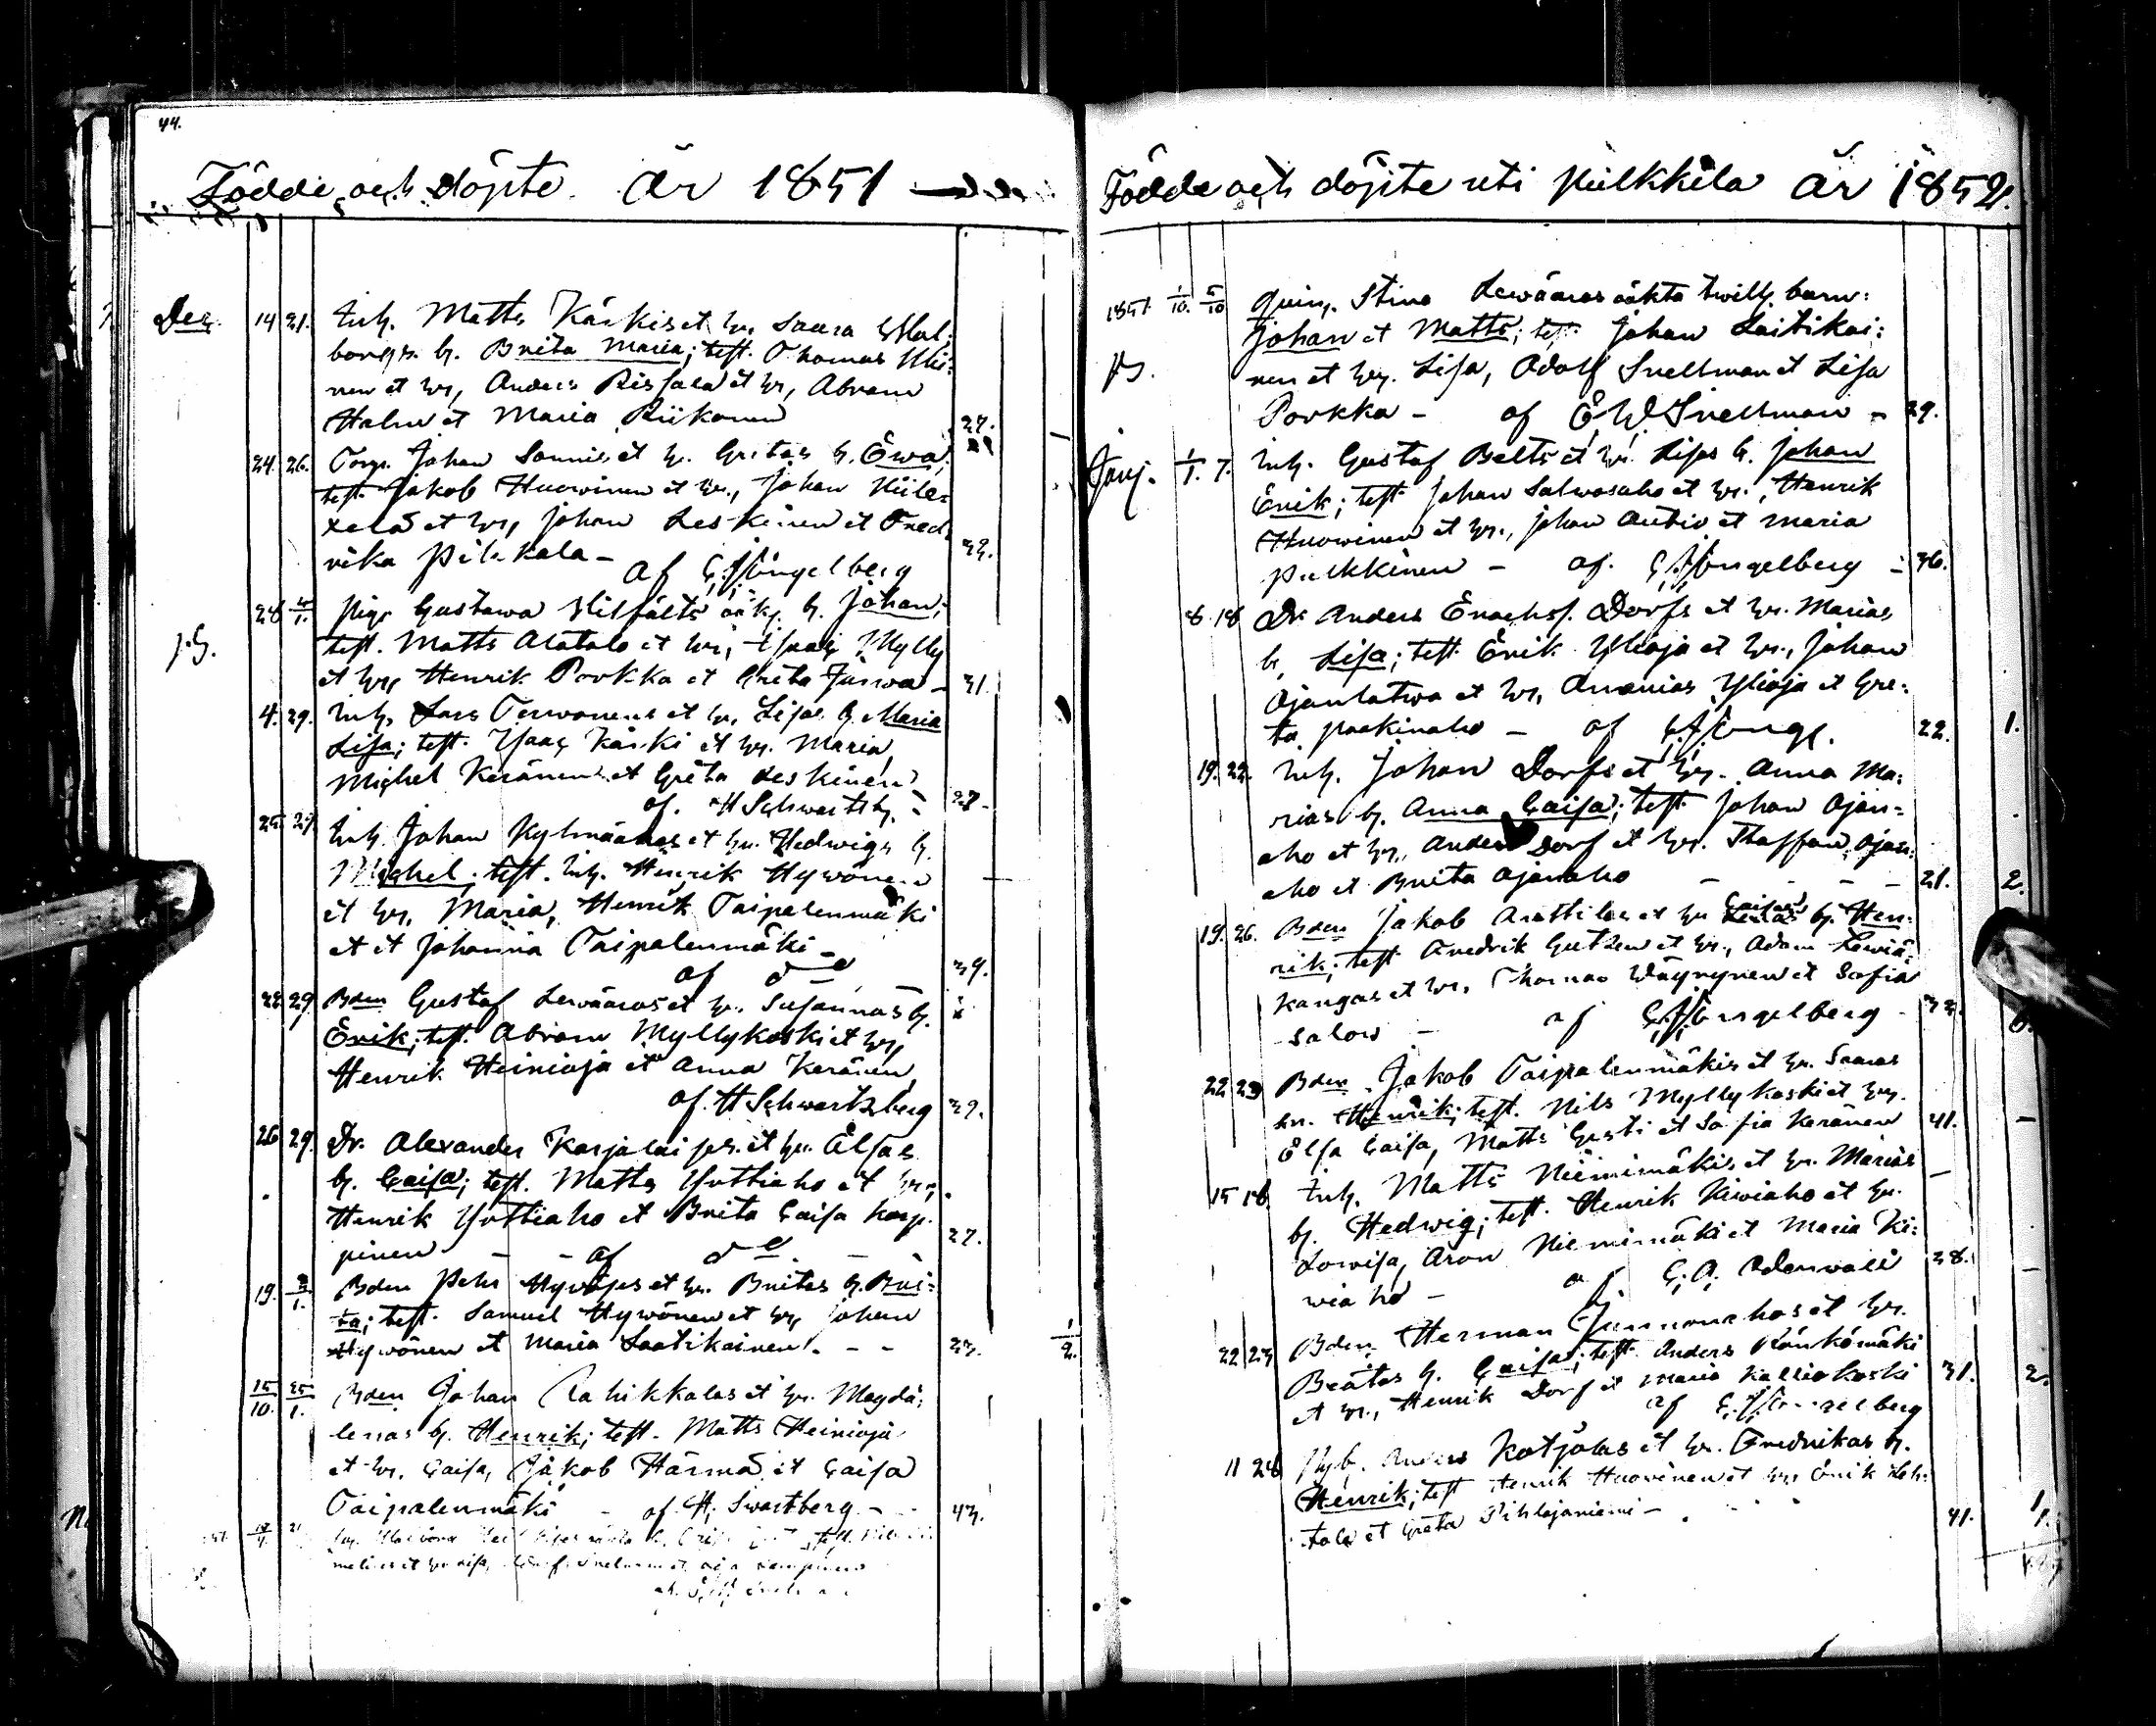 44.
Födde och döpte År 1851
Dec. 14 21. Inh. Matts Käskis et hr. Saara Wal:
borgs b. Brita Maria; test. Thomas
nen et hr, Anders Rissala et hr, Abram
Halm et Maria Riikonen 27.
24. 26. Torp. Johan Sonnis et h. Gretas b. Ewa;
test. Jakob Huowinen et hr., Johan Kiile-
xelä et hr, Johan Leskinen et Fred-
rika Pihkala - af Engelberg 32.
J.S. 28 4/1. Pig. Gustawa oäkt. b. Johan;
test. Matts Alatalo et hr, Isaac Mylly
et hr, Henrik Porkka et Greta Järwa - 31.
4. 29. Inh. Lars Terwonens et hr. Lisas b. Maria
Lisa; test. Isaac Käski et hr. Maria,
Michel Keränen et Greta Leskinen
af. H Schwartzb. - 27.
25 29 Inh. Johan Kylmäahos et hr. Hedwigs b.
Michel; test. Inh. Henrik Hywönen
et hr, Maria, Henrik Taipalenmäki
et et Johanna Taipalenmäki -
af d-o 39.
22 29 Bden Gustaf Lewäaros et hr. Susannas b.
Erik; test. Abram Myllykoski et hr,
Henrik Heinioja et Anna Keränen
af. H Schwartzberg 39.
26 29. Dr. Alexander Karjalai et hr. Elsas
b. Caisa; test. Matts Yottiaho et hr,
Henrik Yottiaho et Brita Caisa Karp-
pinen - - af d-o. - 27.
19. 2/1. Bden Pehr Hywöses et hr. Britas b. Bri:
ta; test. Samuel Hywönen et hr, Johan
Hywönen et Maria Laatikainen. - - 23. 1/2.
15/10. 25/1. Bden Johan Rahikkalas et hr. Magda:
lenas b. Henrik; test. Matts Heinioja
et hr. Caisa, Jakob Härmä et Caisa
Taipalenmäki - af H. Swartberg - 43.
Födde och döpte uti Pulkkila År 1852.
1851. 1/10. 5/10 Quin. Stina Lewäaros oäkta twill. barn:
Johan et Matts; test. Johan Laitikai:
nen et hr. Lisa, Adolf Snellman et Lisa
Porkka - af E W Snellman - 29.
Janj. 1/1. 7. Inh. Gustaf Belts et hr. Lisas b. Johan
Erik; test. Johan Salwosaho et hr., Henrik
Huowinen et hr., Johan Autio et Maria
Pulkkinen - af. Engelberg - 36.
8 18 Dr. Anders Enochss. Dorfs et hr. Marias,
b, Lisa; test. Erik Ylioja et hr., Johan
Ojanlatwa et hr, Ananias Ylioja et Gre:
ta Paekinaho - af Engl. 22. 1.
19. 22. Inh. Johan Dorfs et hr. Anna Ma:
rias b. Anna Caisa; test. Johan Ojan-
aho et hr., Anders Dorf et hr. Staffan Ojan:
aho et Brita Ojanaho - - - - 21. 2.
19. 26. Bden Jakob Anttilas et hr Caisas b. Hen:
rik; test. Fredrik Gutzen et hr., Adam Lewiä:
kangas et hr, Thomas Wäyrynen et Sofia
Salow - af Engelberg - 32. 6.
22 23 Bden Jakob Taipalenmäkis et hr. Saaras
bn. Henrik; test. Nils Myllykoski et hr.
Elsa Caisa, Matts Gusti et Sofia Keränen 41.
15 18. Inh. Matts Niemimäkis et hr. Marias
b. Hedwig; test. Henrik Kiwiaho et hr.
Lowisa, Aron Niemimäki et Maria Ki:
wiaho - af C. A. Odenwall 38.
22 23 Bden Herman Junnonahos et hr.
Beatas b. Caisa; test. Anders Rönkömäki
et hr., Henrik Dorf et Maria Kalliokoski
af Engelberg 31. 2.
11 28 Nyb. Anders Kotjolas et hr. Fredrikas b.
Henrik; test Henrik Huowinen et hr, Erik Leh:
tola et Greta Pihlajaniemi - . 41. 1.